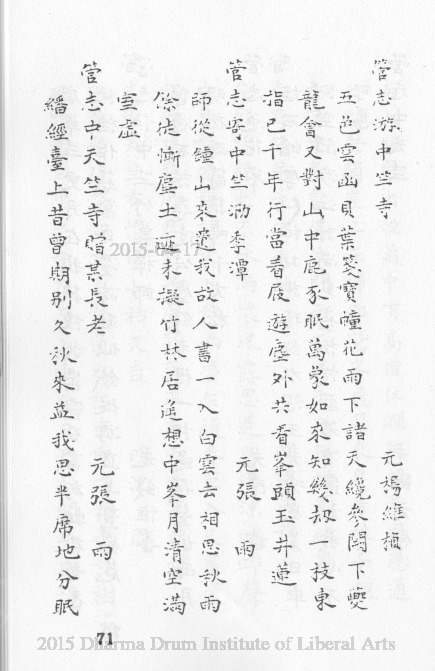 管志游中竺寺　元楊維楨
五色雲函貝葉箋寶幢花雨下諸天纔參閣下夔
龍會又對山中鹿豕眠萬象如來知幾劫一枝東
指已千年行當着屐遊塵外共看峯頭玉井蓮
管志寄中竺泐季潭　元張雨
師從鍾山來遺我故人書一入白雲去相思秋雨
餘徒慚塵土 來擬竹林居遙想中峯月清空滿
室虛
管志中天竺寺贈某長老　元張雨
繙經臺上昔曾期別久秋來益我思半席地分眠
71
2015-04-17
2015 Dharma Drum Institute of Liberal Arts